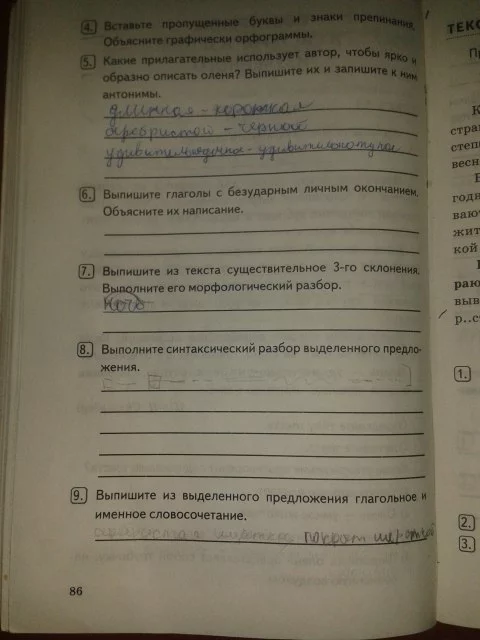 4. Вставьте пропущенные буквы и знаки препинания.
Объясните графически орфограммы.
5. Какие прилагательные использует автор, чтобы ярко и
образно описать оленя? Выпишите их и запишите к ним
антонимы.
длинная - короткая
серебристой - чёрной
6. Выпишите глаголы с безударным личным окончанием.
Объясните их написание.
7. Выпишите из текста существительное 3-го склонения.
Выполните его морфологический разбор.
Ночь
8. Выполните синтаксический разбор выделенного предло-
жения.
9. Выпишите из выделенного предложения глагольное и
именное словосочетание.
покрыт шерсткой
86
ТЕКС
стра
степ
весн
годн
вают
жит
кой
раю
выв
р..с
1.
2.
3.